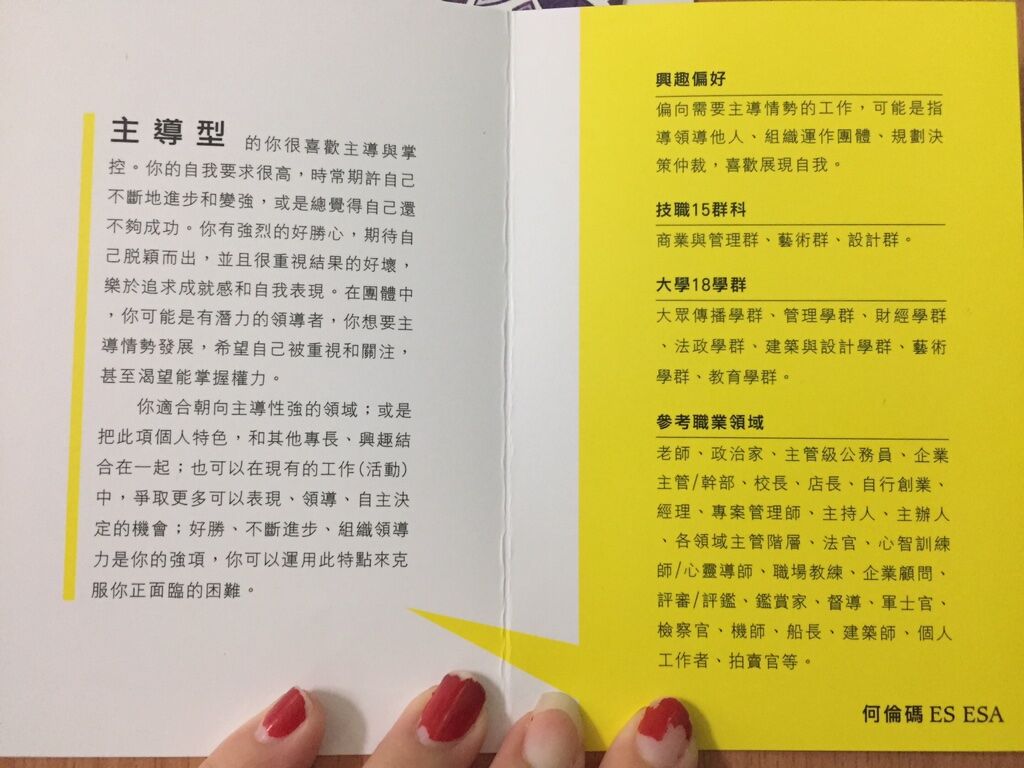 主導型 的你很喜歡主導與掌
控。你的自我要求很高，時常期許自己
不斷地進步和變強，或是總覺得自己還
不夠成功。你有強烈的好勝心，期待自
己脫穎而出，並且很重視結果的好壞，
樂於追求成就感和自我表現。在團體中
，你可能是有潛力的領導者，你想要主
導情勢發展，希望自己被重視和關注，
甚至渴望能掌握權力。
你適合朝向主導性強的領域；或是
把此項個人特色，和其他專長、興趣結
合在一起；也可以在現有的工作(活動)
中，爭取更多可以表現、領導、自主決
定的機會；好勝、不斷進步、組織領導
力是你的強項，你可以運用此特點來克
服你正面臨的困難。
興趣偏好
偏向需要主導情勢的工作，可能是指
導領導他人、組織運作團體、規劃決
策仲裁，喜歡展現自我。
技職15群科
商業與管理群、藝術群、設計群。
大學18學群
大眾傳播學群、管理學群、財經學群
、法政學群、建築與設計學群、藝術
學群、教育學群。
參考職業領域
老師、政治家、主管級公務員、企業
主管/幹部、校長、店長、自行創業、
經理、專案管理師、主持人、主辦人
、各領域主管階層、法官、心智訓練
師/心靈導師、職場教練、企業顧問、
評審/評鑑、鑑賞家、督導、軍士官、
檢察官、機師、船長、建築師、個人
工作者、拍賣官等。
何倫碼 ES ESA